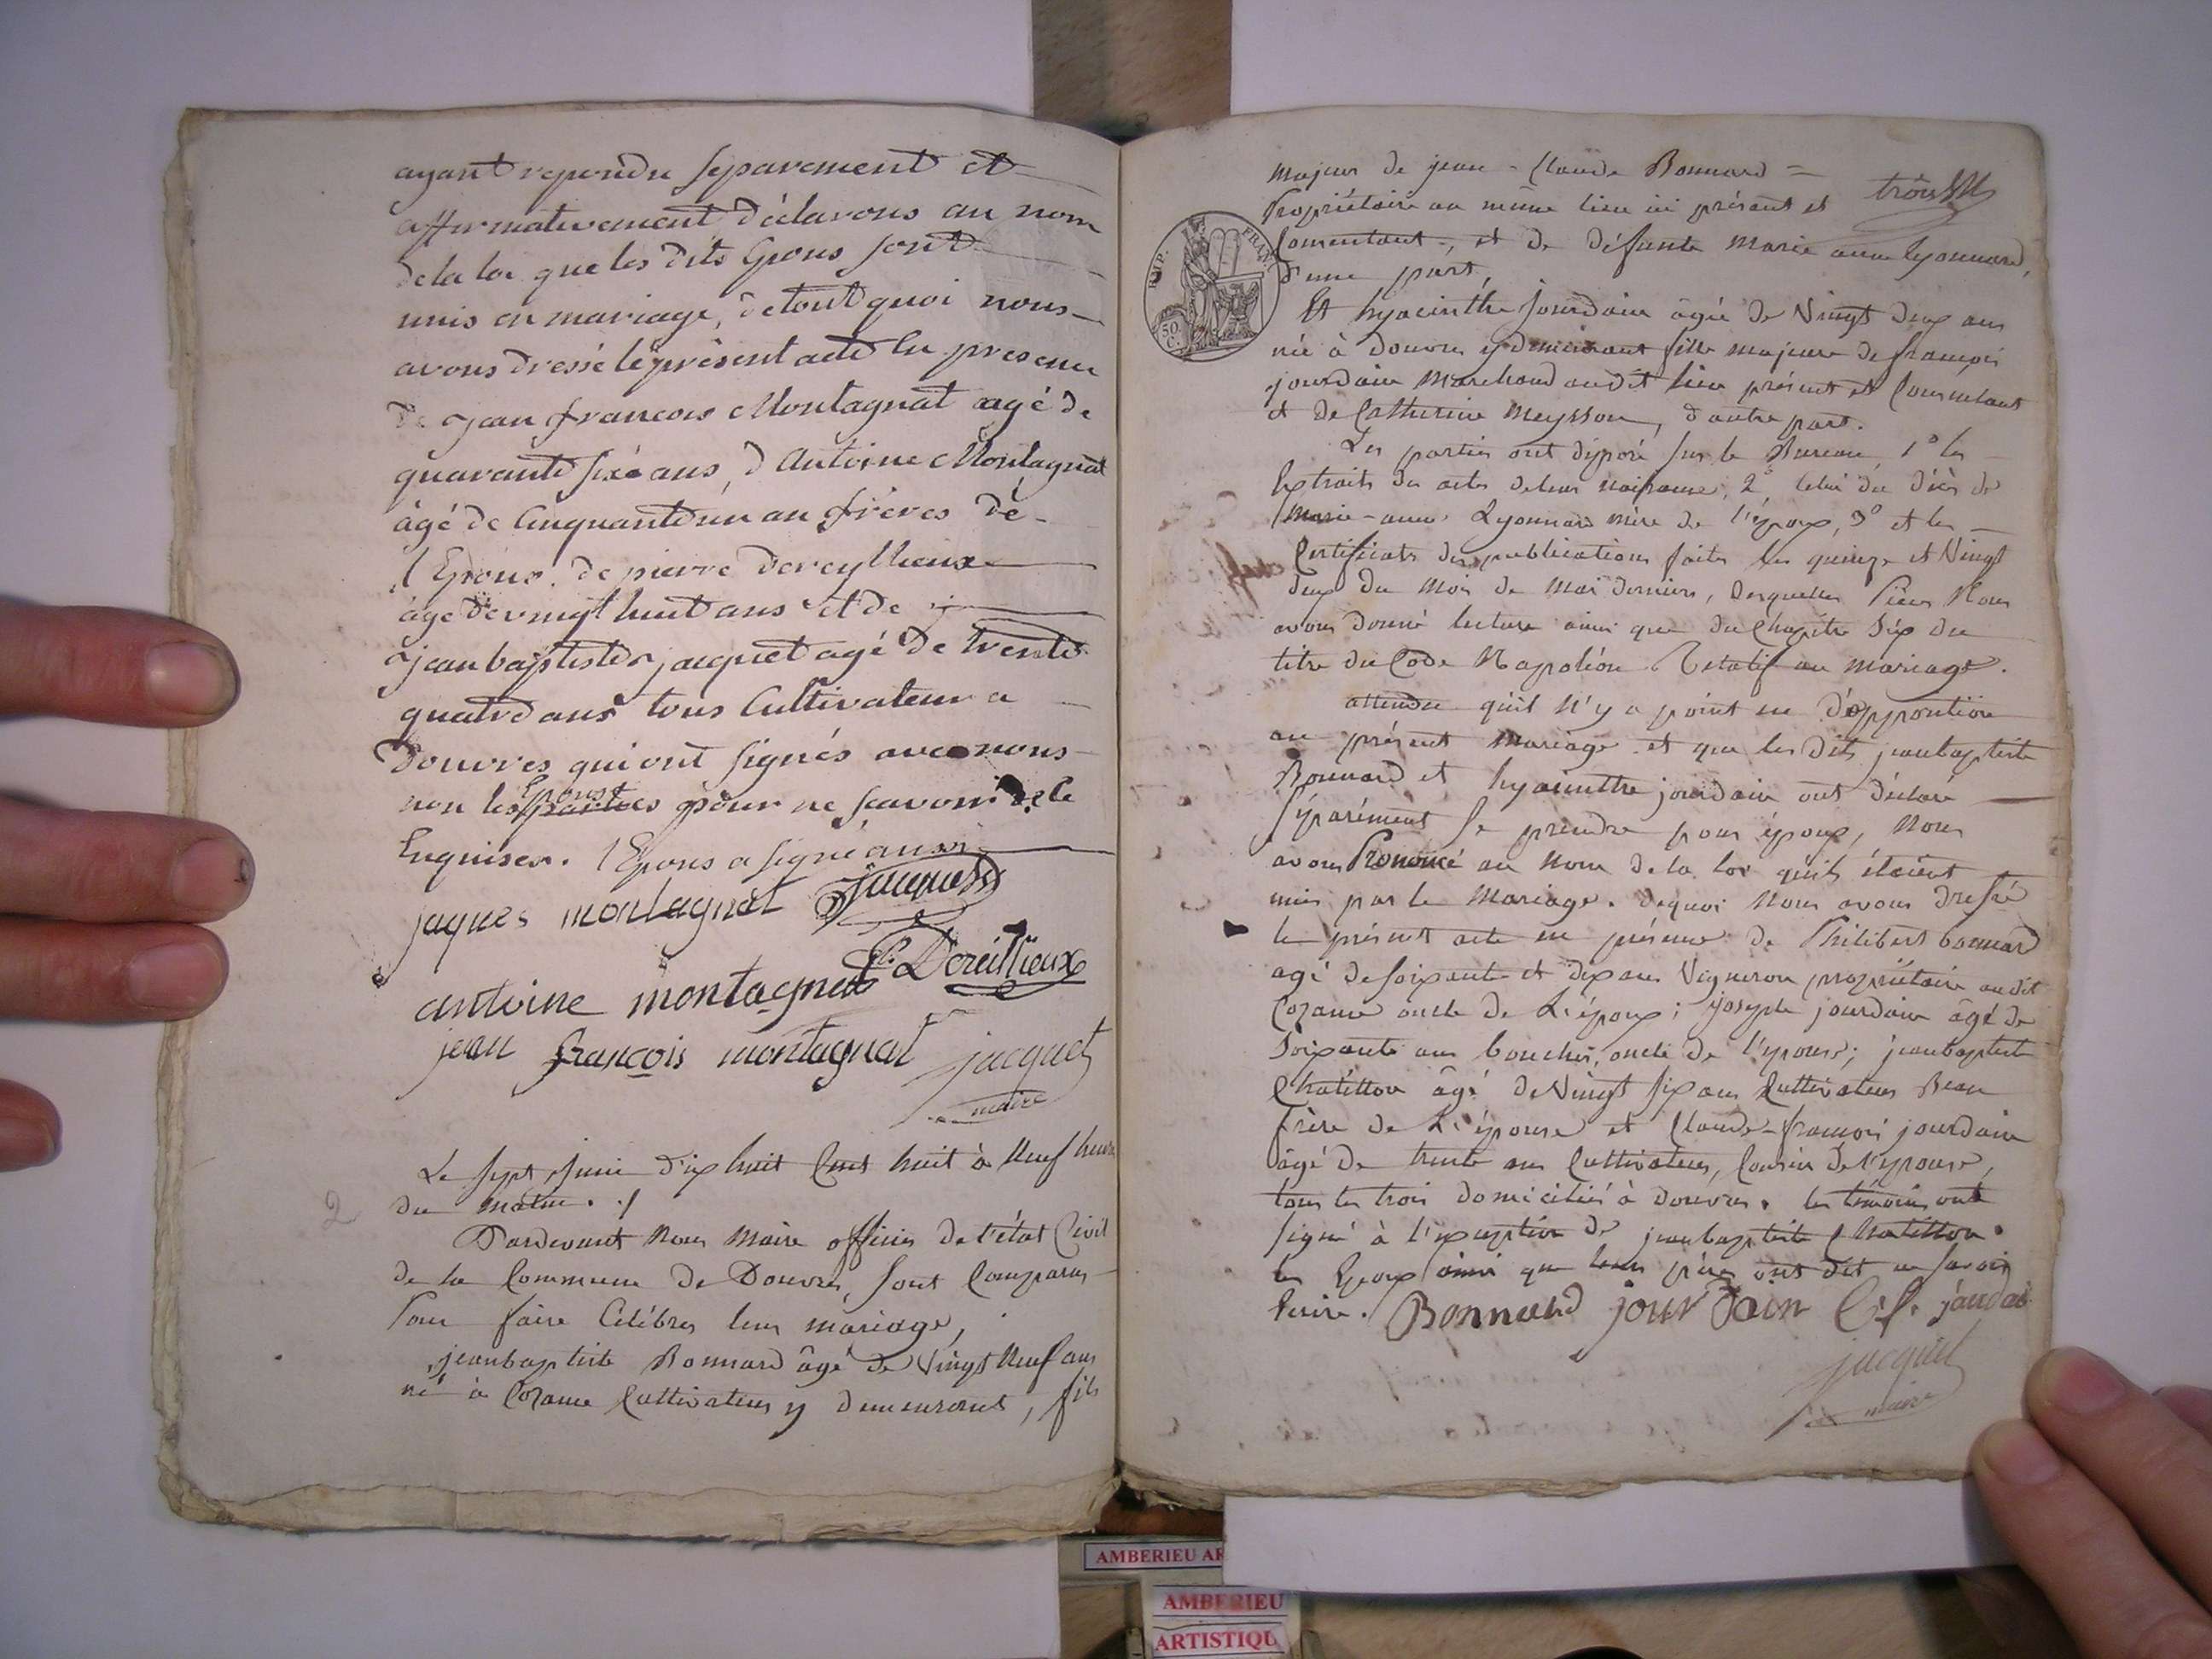 ayant repondu separement et
affirmativement déclarons au nom
de la loi que les dits Epous sont
unis en mariage, de tout quoi nous
avons dressé le présent acte En presence
De jean francois Montagnat aagé de
quarante six ans, d'Antoine Montagnat
âgé de Cinquante un an frères de
l'Epous. de pierre dereyllieux
âgé de vingt huit ans et de
jean baptiste jacquet agé de trente
quatre ans tous Cultivateur a
Douvres qui ont signés avec nous
non les parties pour ne scavoir de ce
Epouse
Enquises. l'Epous a signé aussi
jaques montagnat Jacquet
P. Dereillieux
antoine montagnat
jean françois montagnat jacquet
maire
2
Le sept juin dix huit Cent huit à Neuf heures
du matin.
Pardevant Nous Maire officier de l'état Civil
de la Commune de Douvres, sont Comparus
Pour faire Célébrer leur mariage,
jeanbaptiste Bonnard âgé de Vingt Neuf ans
né à Cozance Cultivateur y demeurant, fils
majeur de jean-Claude Bonnard =
Propriétaire au même lieu ici présent et
Consentant, et de défunte Marie anne Lyonnard,
d'une part,
IMP. FRAN.
50 C.
Et hyacinthe Jourdain âgée de Vingt deux ans
née à Douvres y demeurant fille majeure de françois
jourdain Marchand audit lieu présent et Consentant
et de Catherine Meysson, d'autre part.
Les parties ont déposé sur le Bureau, 1° les
Extraits des actes de leur naissance, 2°, Celui du décès de
Marie-anne Lyonnard mère de l'époux, 3° et les
Certificats des publications faites les quinze et Vingt
deux du mois de Mai dernier, desquelles Pièces Nous
avons donné lecture ainsi que du Chapitre Six du
titre du Code Napoléon Relatif au Mariage.
attendu qu'il N'y a point eu d'opposition
au présent Mariage et que les dits jeanbaptiste
Bonnard et hyacinthe jourdain ont déclaré
Séparément se prendre pour époux, Nous
avons Prononcé au Nom de la loi qu'ils étoient
unis par le Mariage. dequoi Nous avons dressé
le présent acte en présence de Philibert bonnard
agé de soixante et dix ans Vigneron propriétaire audit
Cozance oncle de L'époux; joseph jourdain âgé de
Soixante ans boucher, oncle de l'épouse; jeanbaptiste
Chatillon âgé de Vingt six ans Cultivateur Beau
frère de L'épouse et Claude-françois jourdain
âgé de trente ans Cultivateur, Cousin de l'épouse,
tous les trois domiciliés à Douvres. les témoins ont
signé à l'exception de jeanbaptiste Chatillon.
les Epoux ainsi que leurs pères ont dit ne savoir
Ecrire. Bonnard jourdain C.f. jourdai
jacquet
maire
AMBERIEU AR
AMBERIEU
ARTISTIQU